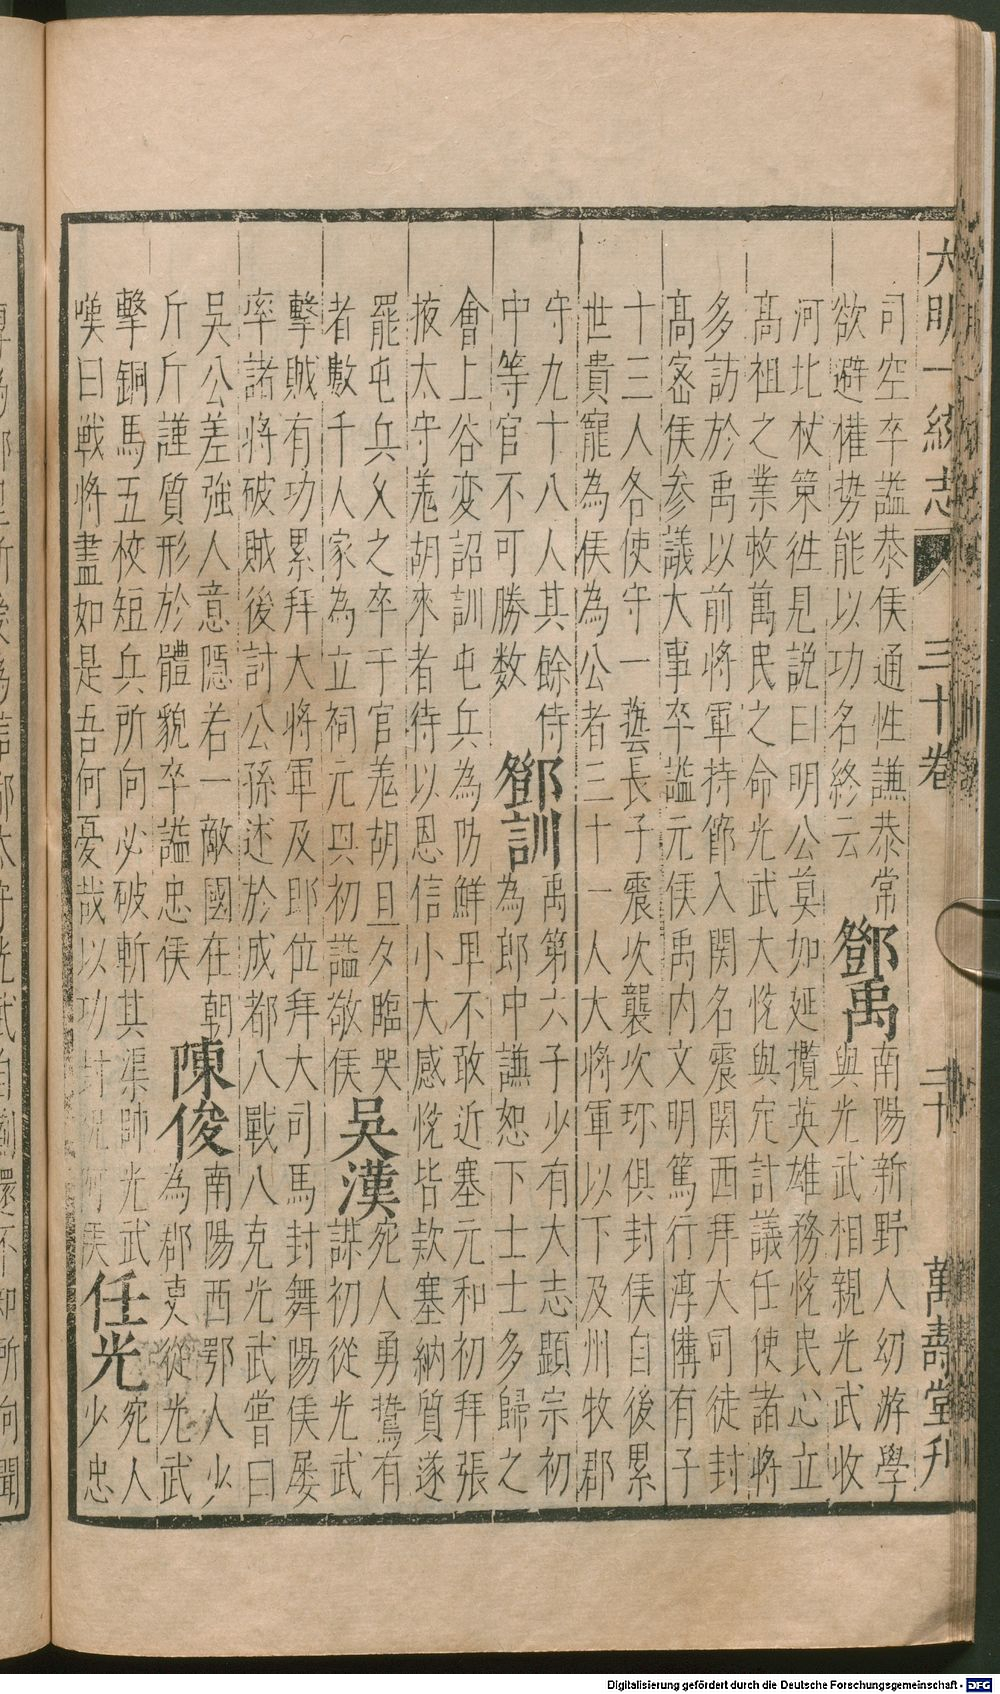 大明一統志 三十卷 二十 萬壽堂刋
司空卒謚恭侯通性謙恭常
欲避權势能以功名終云
鄧禹
南陽新野人幼游學
與光武相親光武收
河北杖策徃見說曰明公莫如延攬英雄務悅民心立
髙祖之業救萬民之命光武大悅與定計議任使諸將
多訪於禹以前將軍持節入関名震関西拜大司徒封
髙宻侯参議大事卒謚元侯禹内文明篤行淳備有子
十三人各使守一藝長子震次襲次珎俱封侯自後累
世貴寵為侯為公者三十一人大將軍以下及州牧郡
守九十八人其餘侍
中等官不可勝数
鄧訓
禹第六子少有大志顯宗初
為郎中謙恕下士士多歸之
會上谷変詔訓屯兵為防鮮卑不敢近塞元和初拜張
掖太守羗胡來者待以恩信小大感悅皆欵塞納質遂
罷屯兵乆之卒于官羗胡旦夕臨哭
者數千人家為立祠元興初謚敬侯
吳漢
宛人勇鷙有
謀初從光武
擊賊有功累拜大將軍及即位拜大司馬封舞陽侯屡
率諸將破賊後討公孫述於成都八戰八克光武嘗曰
吳公差強人意隱若一敵國在朝
斤斤謹質形於體貌卒謚忠侯
陳俊
南陽西鄂人少
為郡吏從光武
擊銅馬五校短兵所向必破斬其渠帥光武
嘆曰戰將盡如是吾何憂哉以功封祝阿侯
任光
宛人
少忠
Digitalisierung gefördert durch die Deutsche Forschungsgemeinschaft - DFG